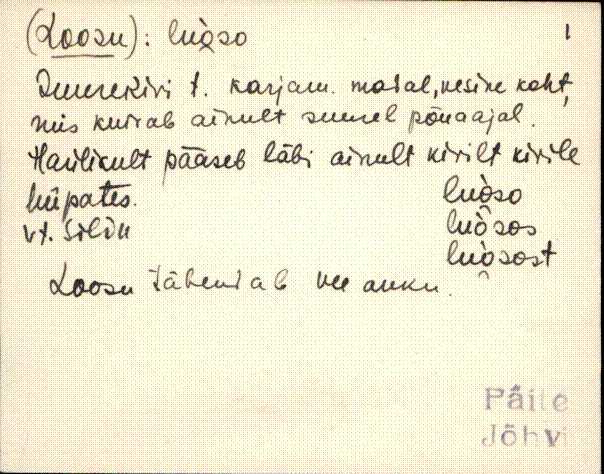 (Loosu): lùo̭so 1
Suurekivi t. karjam. madal, vesine koht,
mis kuivab ainult suurel põuaajal.
Harilikult pääseb läbi ainult kivilt kivile
hüpates. lùo̭so
vt. Silin lùo̭sos
lùo̭sost
Loosu tähendab vee auku.
Päite
Jõhvi